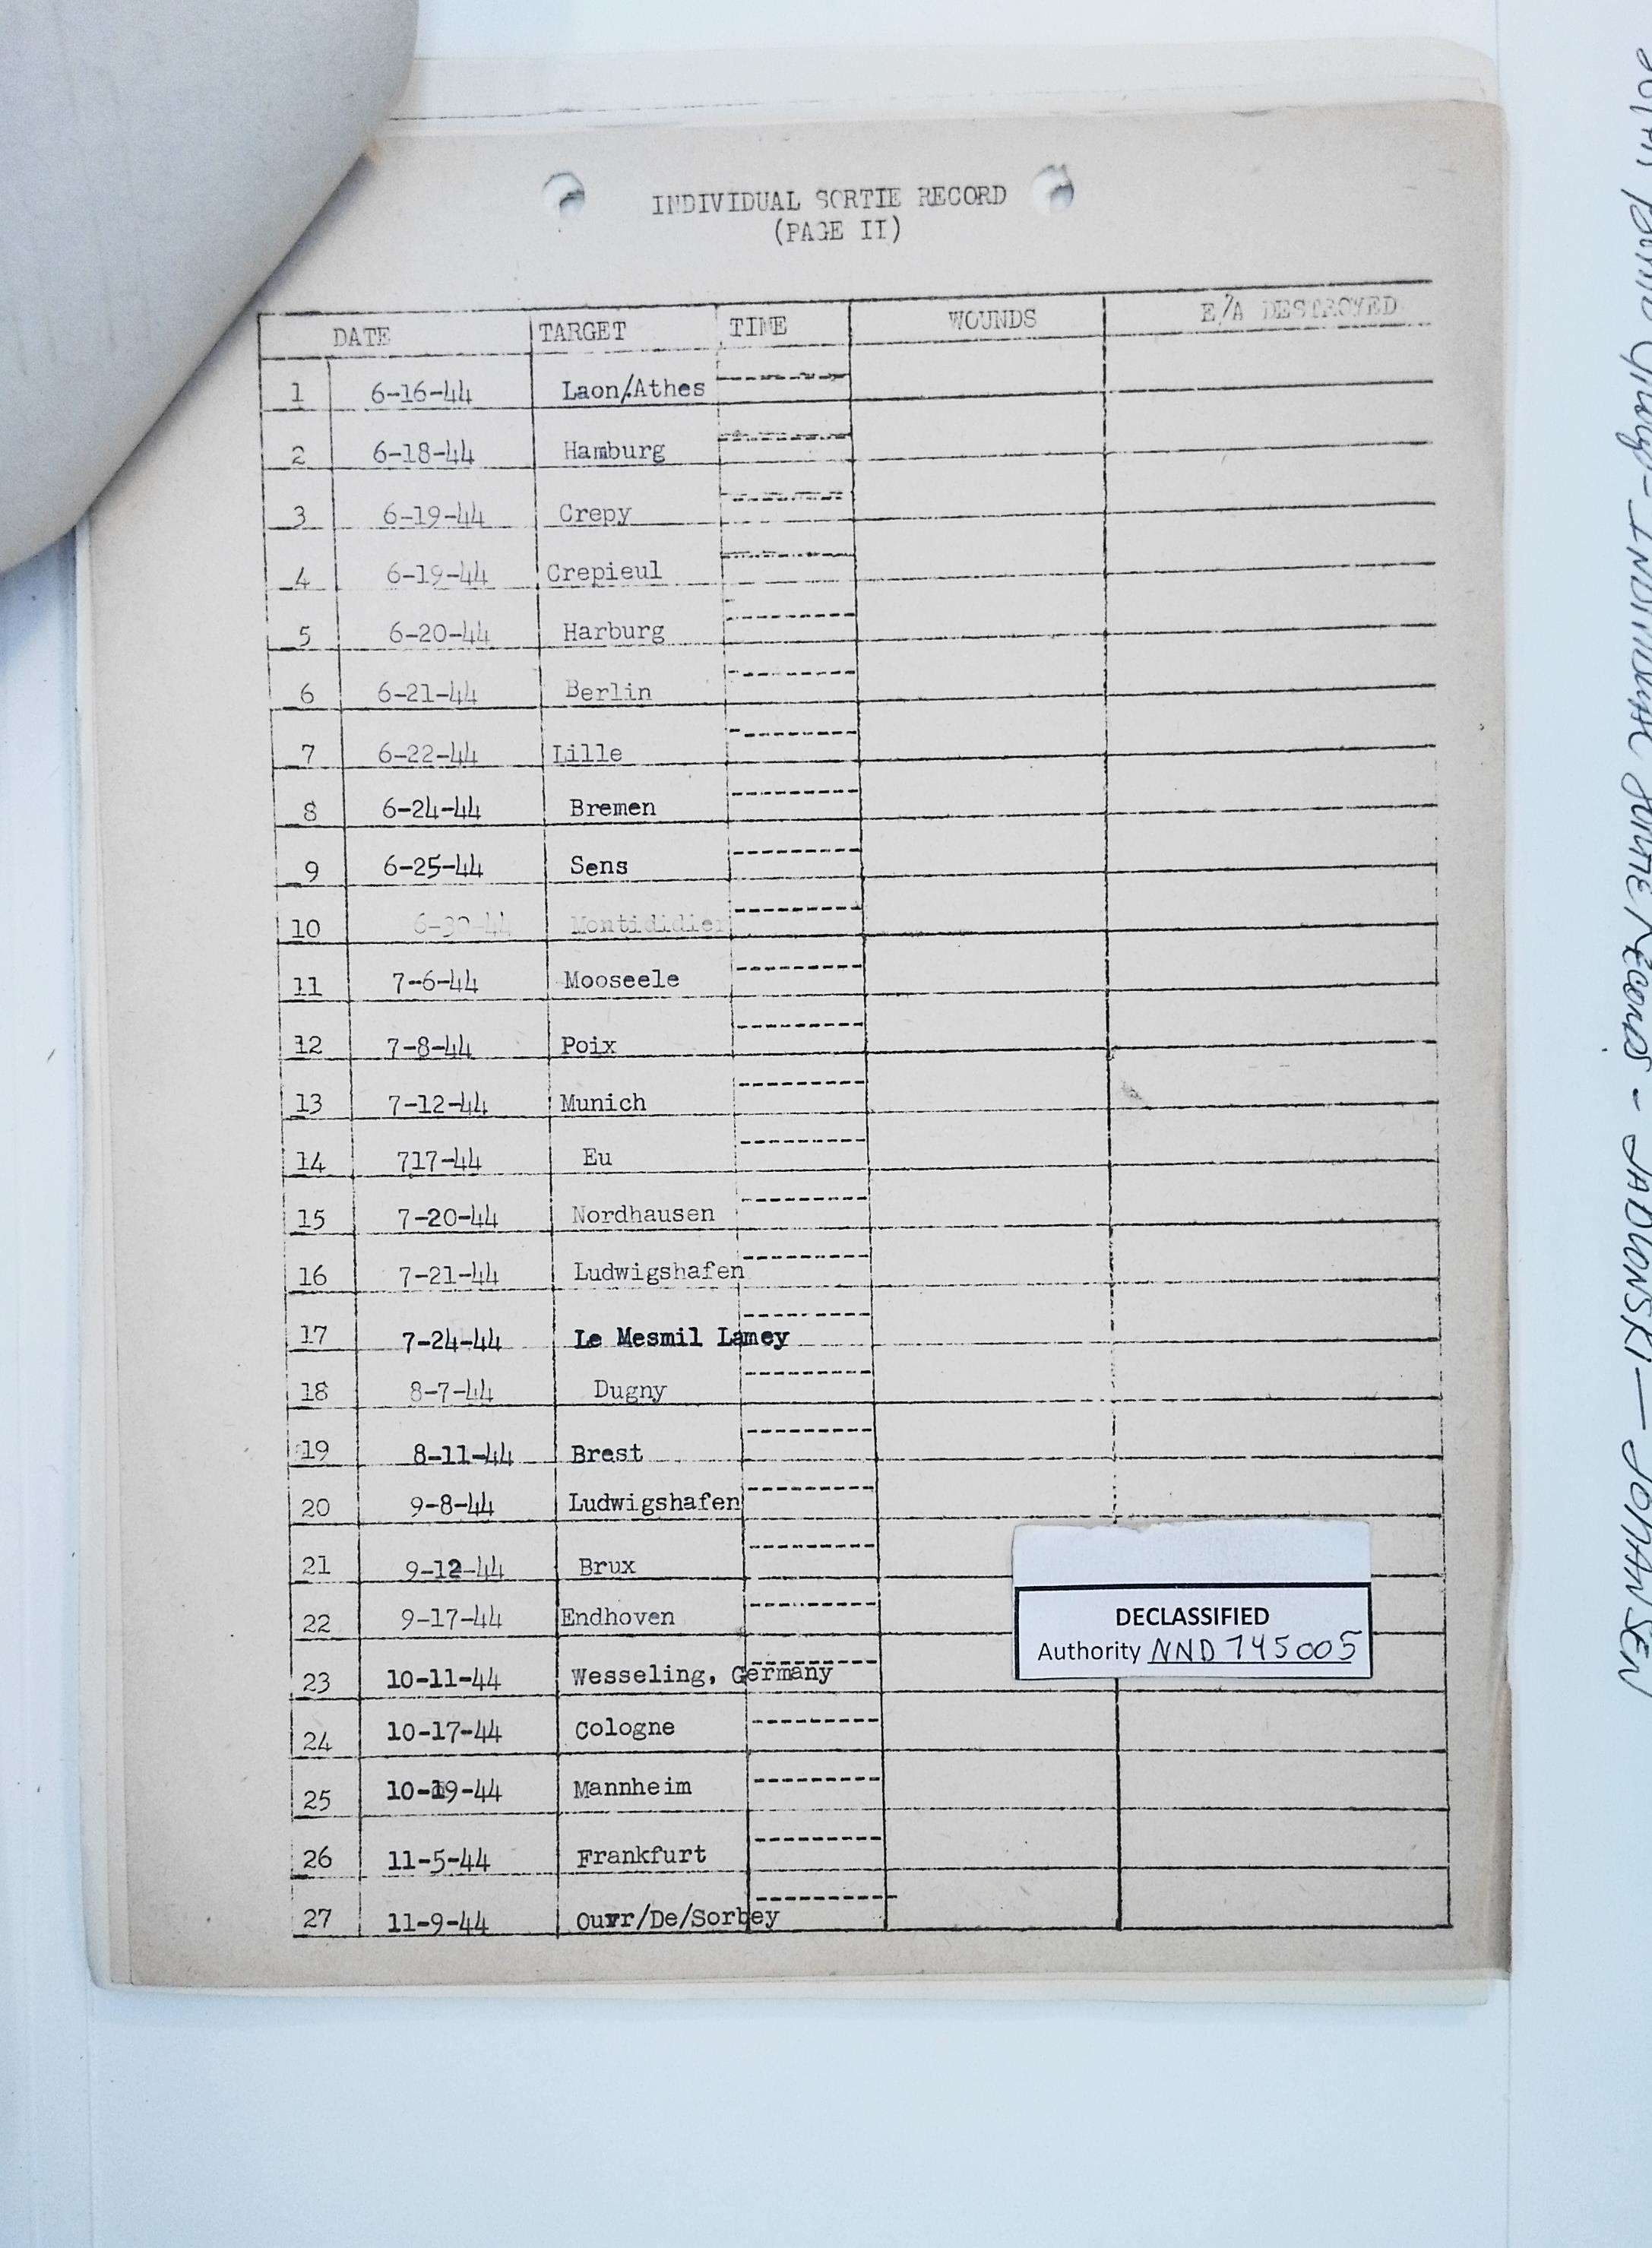 INDIVIDUAL SORTIE RECORD
(PAGE II)
DATE TARGET TIME WOUNDS E/A DESTROYED
1 6-16-44 Laon/Athes
2 6-18-44 Hamburg
3 6-19-44 Crepy
4 6-19-44 Crepieul
5 6-20-44 Harburg
6 6-21-44 Berlin
7 6-22-44 Lille
8 6-24-44 Bremen
9 6-25-44 Sens
10 6-30-44 Montididier
11 7-6-44 Mooseele
12 7-8-44 Poix
13 7-12-44 Munich
14 717-44 Eu
15 7-20-44 Nordhausen
16 7-21-44 Ludwigshafen
17 7-24-44 Le Mesmil Lamey
18 8-7-44 Dugny
19 8-11-44 Brest
20 9-8-44 Ludwigshafen
21 9-12-44 Brux
22 9-17-44 Endhoven
23 10-11-44 Wesseling, Germany
24 10-17-44 Cologne
25 10-19-44 Mannheim
26 11-5-44 Frankfurt
27 11-9-44 Ouvr/De/Sorbey
DECLASSIFIED
Authority NND 745005
Bomb Group - INDIVIDUAL SORTIE RECORDS - JADWNSKI — JOHANSEN